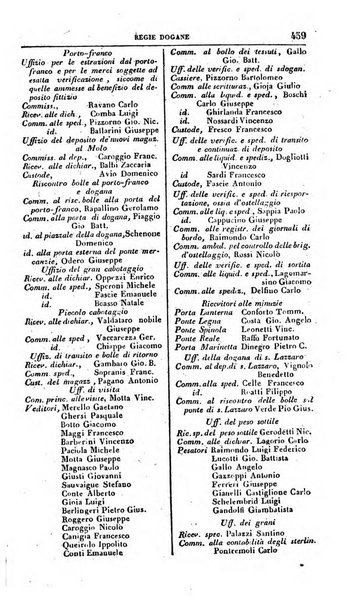 REGIE DOGANE 459
Porto-franco
Uffizio per le estrazioni dal porto-
franco e per le merci soggette ad
eguale visita siccome
quelle ammesse al benefizio del
deposito fittizio
Commiss., Ravano Carlo
Ricev. alle dich., Comba Luigi
Comm. alle sped., Pizzorno Gio. Nic.
id. Bardellini Giuseppe
Uffizio del deposito de' nuovi magaz.
al Molo
Commiss. al dep., Caroggio Franc.
Ricev. alle dichiar., Balbi Zaccaria
Custode, Avio Domenico
Riscontro bolle al porto-franco
e dogana
Comm. al risc. bolle alla porta del
porto-franco, Rapallino Gerolamo
Comm. alla porta di dogana, Piaggio
Gio Batt.
id. al piazzale della dogana, Schenone
Domenico
id. alla porta esterna del ponte mer-
canzie, Odero Giuseppe
Uffizio del gran cabottaggio
Ricev. alle dichiar. Oppezzi Enrico
Comm. alle sped., Speroni Michele
id. Fascie Emanuele
id. Bicasso Natale
Piccolo cabotaggio
Ricev. alle dichiar., Valdatero nobile
Giuseppe
Comm. alle sped., Vaccarezza Ger.
id. Chiappe Giacomo
Uffiz. di transito e bolle di ritorno
Ricev. alle dichiar., Gambaro Gio B.
Comm. alle sped., Sopranis Franc.
Cust. del magazz., Pagano Antonio
Uff. di visita
Comm. princ. alle visite, Motta Vinc.
Veditori, Merello Gaetano
Ghersi Pasquale
Botto Giacomo
Maggi Francesco
Barberini Vincenzo
Paciola Michele
Motta Giuseppe
Magnasco Paolo
Giusti Giovanni
Sauvaigue Stefano
Conte Alberto
Gioia Nicola
Berlingeri Pietro Gius.
Roggero Giuseppe
Caroggio Nicolò
Canigia Francesco
Queirolo Ippolito
Conti Emanuele
Comm. al bollo dei tessuti, Gallo
Gio. Batt.
Uff. delle verific. e sped. di importaz.
Cassiere, Pizzorno Bartolomeo
Comm. alle scritturaz., Gioja Giulio
Comm. alla liquid. e spediz., Boschi
Carlo Francesco
id. Ghirlanda Francesco
id. Nossardi Vincenzo
Custode, Fresco Francesco
Uff. delle verific. e sped. di transito
e continuaz di deposito
Comm. alle liquid. e spediz., Dagliotti
Vincenzo
id. Sardi Francesco
Custode, Fascie Antonio
Uff. delle verific. e sped. di riespor-
tazione, ossia d'ostellaggio
Comm. alle liq. e sped., Sappia Paolo
id. Cappuccino Giuseppe
Comm. alle registr. dei giornali di
bordo, Raimondo Carlo
Comm. ambul. pel controllo delle brig.
d'ostellaggio, Rossi Nicolo
Uff. delle verific. e sped. di sortita
Comm. alle liquid. e sped., Lagomar-
sino Giacomo
Ricevitori alle minuzie
Porta Lanterna Conforto Tomm.
Ponte Legna Costa Gio. Angelo
Ponte Spinola Leonetti Vinc.
Ponte Reale Raffo Fortunato
Porta Marinetta Dinegro Pietro C.
Uff. della dogana di s. Lazzaro
Ricev. alle dichiar. e sped., Vignolo
Benedetto
Comm. alla sped. Celle Francesco
id. Roatti Filippo
Comm. al riscontro delle bolle sul
ponte di s. Lazzaro Verde Pio Gius.
Uff. del peso sottile
Ric. sig. del peso sottile Gerodetti Nic.
Comm. alle dichiar. Lagorio Carlo
Pesatori Raimondo Luigi Federico
Lucotti Gio. Battista
Gallo Angelo
Gazzoppi Antonio
Ferreri Giuseppe
Gianelli Castiglione Carlo
Grasso Giuseppe
Gandolfi Giambatista
Uff. dei grani
Comm. riscuot. speciale Palazzi Santino
Comm. alla contabilità degli sterlin.
Pontremoli Carlo